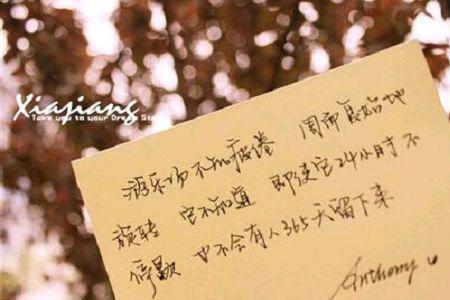 Xiasiang
Take you to your Dream
游乐场不知疲倦 周而复始地
旋转 它不知道 即使它24小时不
停歇 也不会有人365天留下来
Anthony